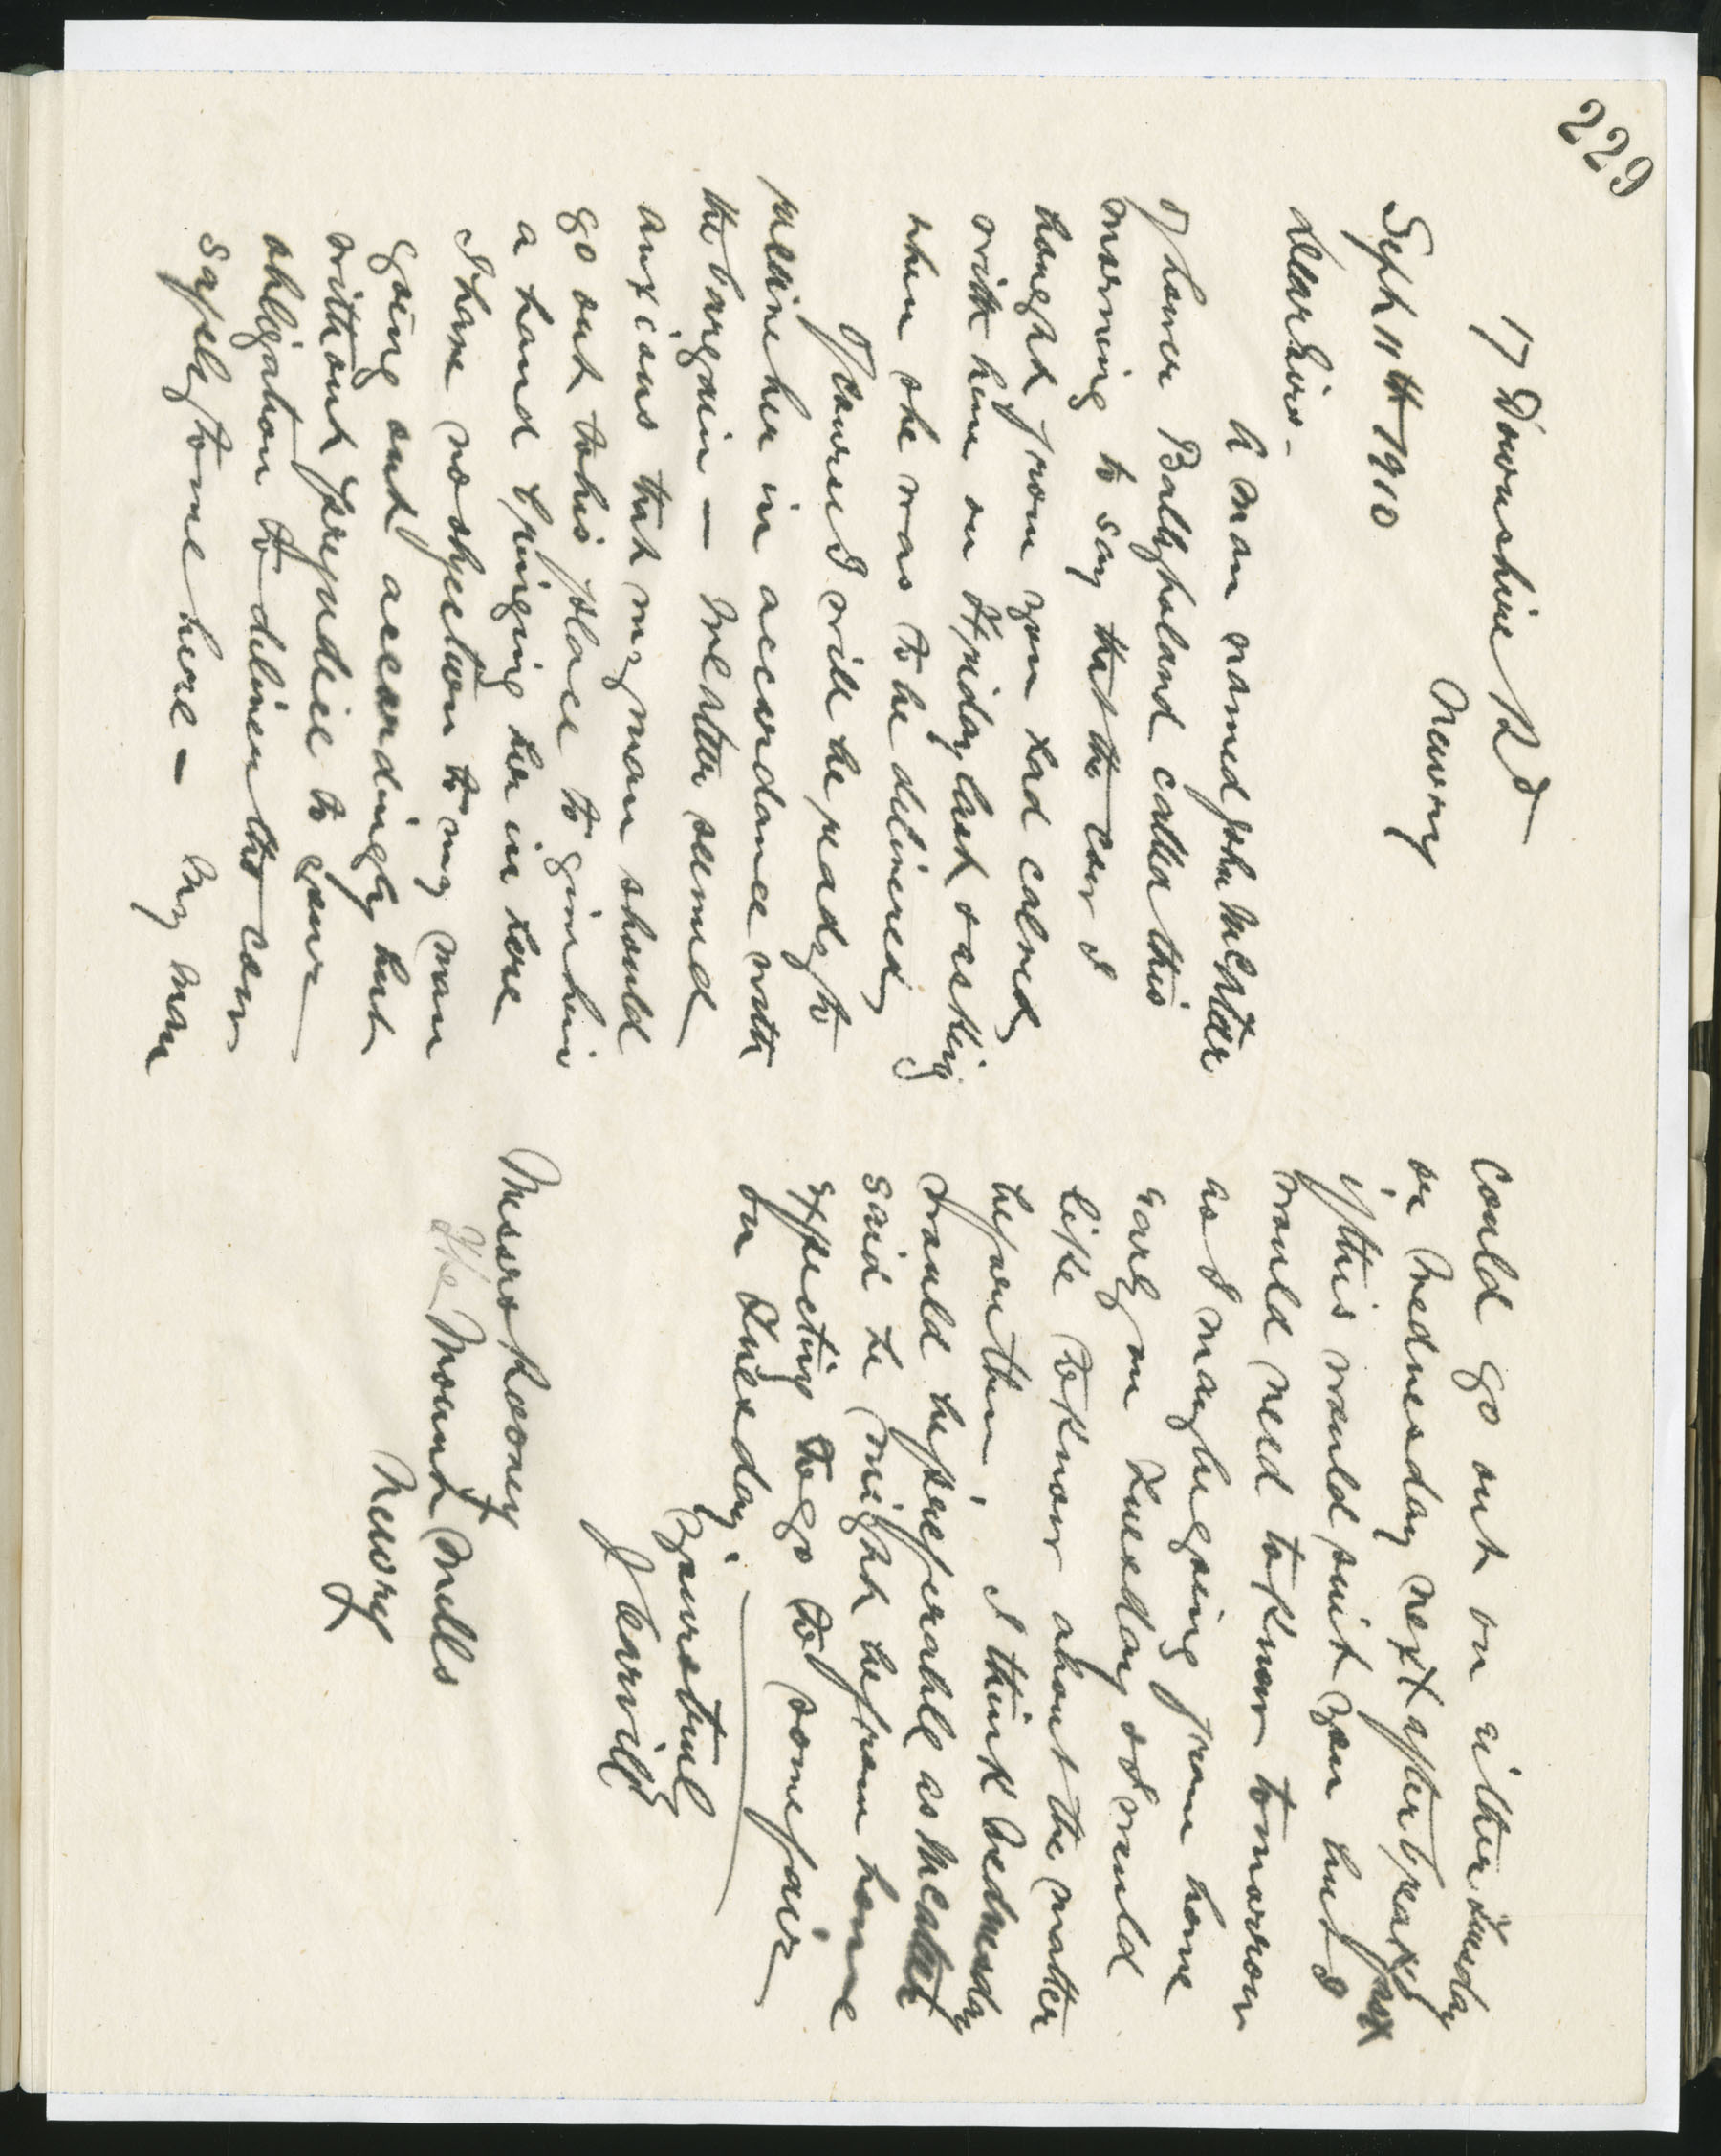 229
17 Downshire Rd
Newry
Sept 11th 1910
Dear Sirs -
A man named John McAteer
of lower Ballyholand called this
morning to say that the cow I
bought from you had calved
with him on Friday last & asking
when she was to be delivered
Of course I will be ready to
receive her in accordance with
the bargain - McAteer seemed
anxious that my man should
go out to his place to give him
a hand bringing her in here
I have no objection to my man
going out accordingly but
without prejudice to your
obligation to deliver the cow
safely to me here - My man
could go out on either Tuesday
or Wednesday next after breakfast
if this would suit you but I
would need to know tomorrow
as I may be going from home
early on Tuesday & I would
like to know about the matter
before then. I think Wednesday
would be preferable as McAteer
said he might be from home
expecting to go to some fair
on Tuesday.
Yours truly
J Carvill
Messrs Rooney
The Mount Mills
Newry